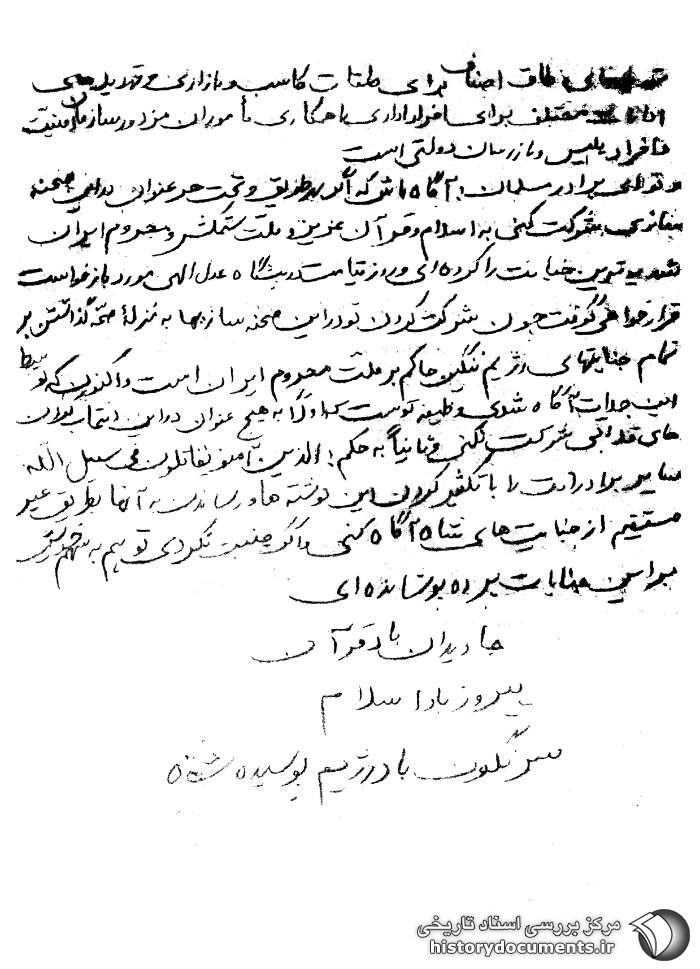 اطاق اصناف برای طبقات کاسب و بازاری و تهدیدهای
مختلف برای افراد اداری با همکاری مأموران مزدور سازمان امنیت
و افراد پلیس و بازرسان دولتی است
و تو ای برادر مسلمان: آگاه باش که اگر بهر طریق و تحت هر عنوان در این صحنه
سازی شرکت کنی به اسلام و قرآن عزیز و ملت ستمکش و محروم ایران
شدیدترین خیانت را کرده‌ای و روز قیامت در پیشگاه عدل الهی مورد بازخواست
قرار خواهی گرفت چون شرکت کردن تو در این صحنه سازیها به منزلهٔ صحّه گذاشتن بر
تمام جنایتهای رژیم ننگین حاکم بر ملت محروم ایران است و اکنون که توسط
این جملات آگاه شدی وظیفه توست که اولاً به هیچ عنوان در این انتخابات
های قلابی شرکت نکنی و ثانیاً به حکم: الذین آمنو یقاتلون فی سبیل الله
سایر برادرانت را با تکثیر کردن این نوشته ها و رساندن به آنها بطریق غیر
مستقیم از جنایت های شاه آگاه کنی و اگر چنین نکردی تو هم به سهم خویش
بر این جنایات پرده پوشانده ای
جاویدان باد قرآن
پیروز باد اسلام
سرنگون باد رژیم پوسیده شاه
مرکز بررسی اسناد تاریخی
historydocuments.ir